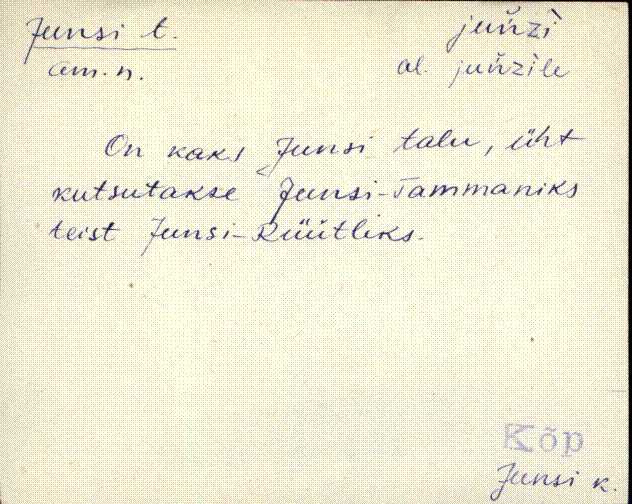 Junsi t. juńzì
am.n. al. juńzile
On kaks Junsi talu, üht
kutsutakse Junsi-Tammaniks
teist Junsi-Rüütliks.
Kõp
Junsi k.